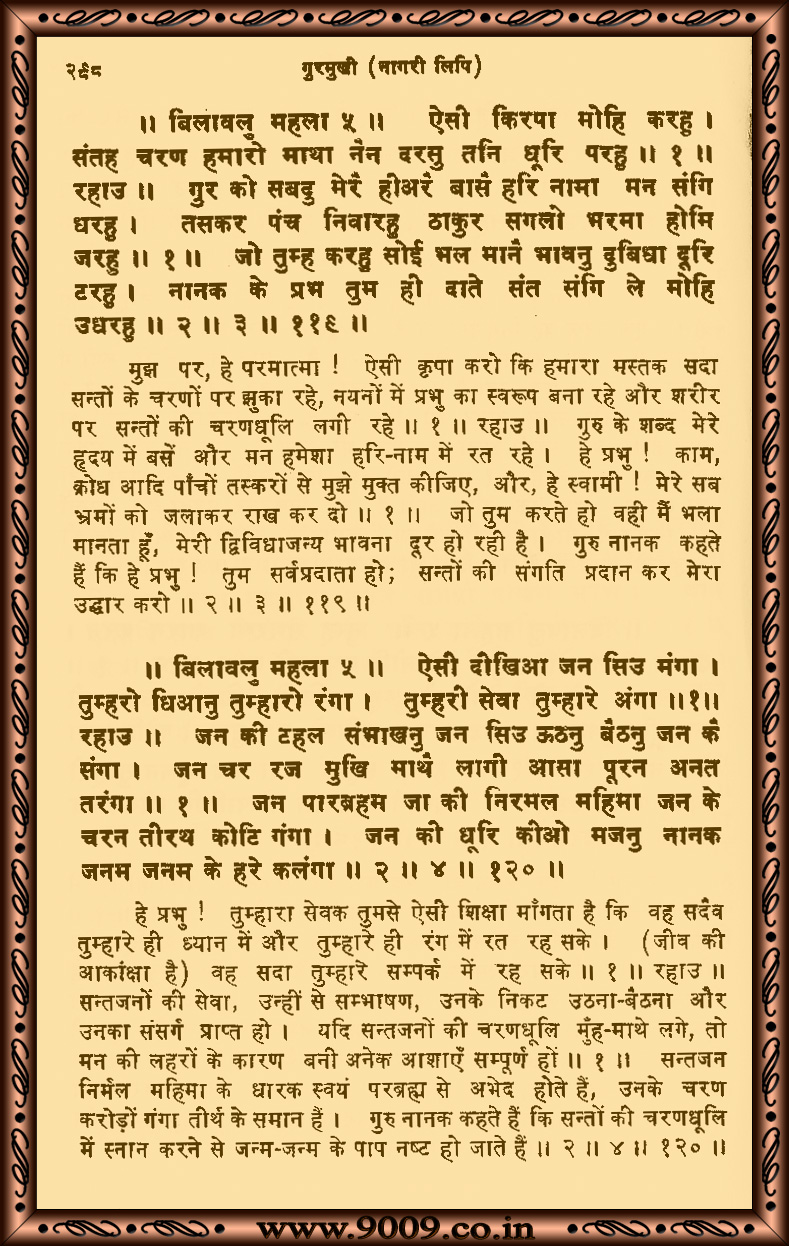 २९८ गुरमुखी (नागरी लिपि)
॥ बिलावलु महला ५ ॥ ऐसी किरपा मोहि करहु ।
संतह चरण हमारो माथा नैन दरसु तनि धूरि परहु ॥ १ ॥
रहाउ ॥ गुर को सबदु मेरै हीअरै बासै हरि नामा मन संगि
धरहु । तसकर पंच निवारहु ठाकुर सगलो भरमा होमि
जरहु ॥ १ ॥ जो तुम्ह करहु सोई भल मानै भावनु दुबिधा दूरि
टरहु । नानक के प्रभ तुम ही दाते संत संगि ले मोहि
उधरहु ॥ २ ॥ ३ ॥ ११९ ॥
मुझ पर, हे परमात्मा ! ऐसी कृपा करो कि हमारा मस्तक सदा
सन्तों के चरणों पर झुका रहे, नयनों में प्रभु का स्वरूप बना रहे और शरीर
पर सन्तों की चरणधूलि लगी रहे ॥ १ ॥ रहाउ ॥ गुरु के शब्द मेरे
हृदय में बसें और मन हमेशा हरि-नाम में रत रहे । हे प्रभु ! काम,
क्रोध आदि पाँचों तस्करों से मुझे मुक्त कीजिए, और, हे स्वामी ! मेरे सब
भ्रमों को जलाकर राख कर दो ॥ १ ॥ जो तुम करते हो वही मैं भला
मानता हूँ, मेरी द्विविधाजन्य भावना दूर हो रही है । गुरु नानक कहते
हैं कि हे प्रभु ! तुम सर्वप्रदाता हो; सन्तों की संगति प्रदान कर मेरा
उद्धार करो ॥ २ ॥ ३ ॥ ११९ ॥
॥ बिलावलु महला ५ ॥ ऐसी दीखिआ जन सिउ मंगा ।
तुम्हरो धिआनु तुम्हारो रंगा । तुम्हरी सेवा तुम्हारे अंगा ॥१॥
रहाउ ॥ जन की टहल संभाखनु जन सिउ ऊठनु बैठनु जन कै
संगा । जन चर रज मुखि माथै लागी आसा पूरन अनत
तरंगा ॥ १ ॥ जन पारब्रहम जा की निरमल महिमा जन के
चरन तीरथ कोटि गंगा । जन की धूरि कीओ मजनु नानक
जनम जनम के हरे कलंगा ॥ २ ॥ ४ ॥ १२० ॥
हे प्रभु ! तुम्हारा सेवक तुमसे ऐसी शिक्षा माँगता है कि वह सदैव
तुम्हारे ही ध्यान में और तुम्हारे ही रंग में रत रह सके । (जीव की
आकांक्षा है) वह सदा तुम्हारे सम्पर्क में रह सके ॥ १ ॥ रहाउ ॥
सन्तजनों की सेवा, उन्हीं से सम्भाषण, उनके निकट उठना-बैठना और
उनका संसर्ग प्राप्त हो । यदि सन्तजनों की चरणधूलि मुँह-माथे लगे, तो
मन की लहरों के कारण बनी अनेक आशाएँ सम्पूर्ण हों ॥ १ ॥ सन्तजन
निर्मल महिमा के धारक स्वयं परब्रह्म से अभेद होते हैं, उनके चरण
करोड़ों गंगा तीर्थ के समान हैं । गुरु नानक कहते हैं कि सन्तों की चरणधूलि
में स्नान करने से जन्म-जन्म के पाप नष्ट हो जाते हैं ॥ २ ॥ ४ ॥ १२० ॥
www.9009.co.in